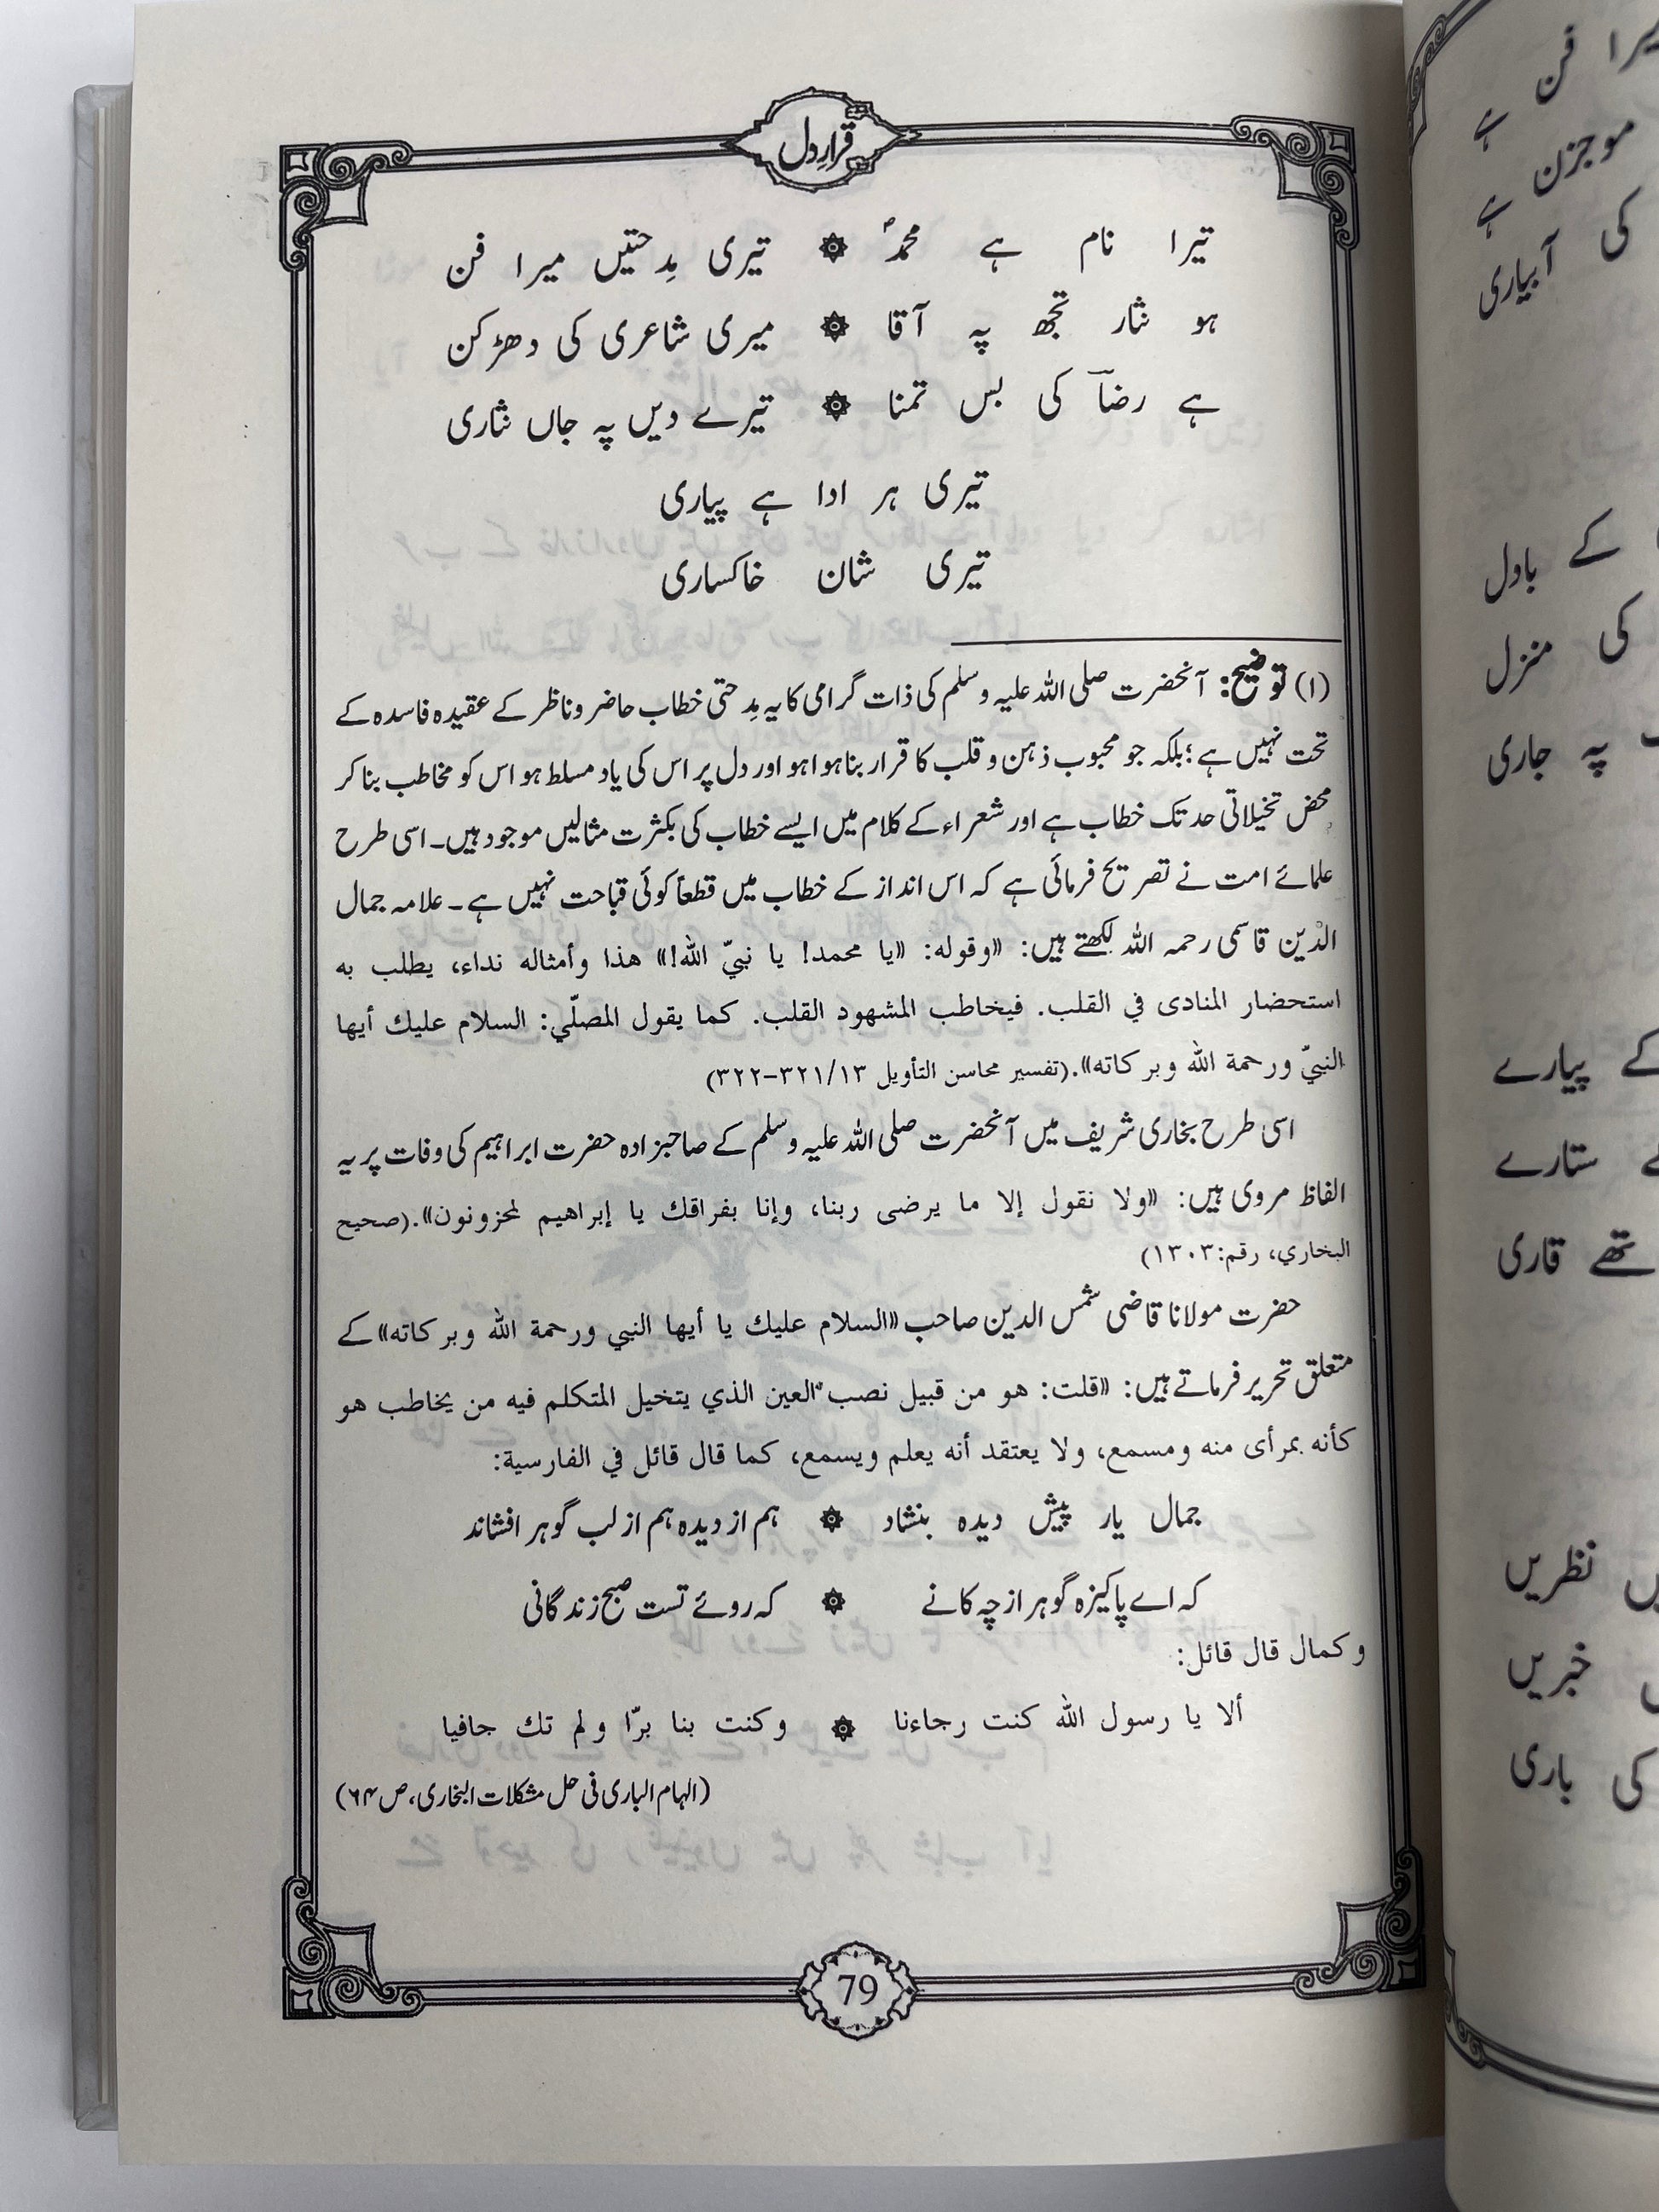 قرارِ دل
تیرا نام ہے محمدؐ ۞ تیری مِدحتیں میرا فن
ہو نثار تجھ پہ آقا ۞ میری شاعری کی دھڑکن
ہے رضاؔ کی بس تمنا ۞ تیرے دیں پہ جاں نثاری
تیری ہر ادا ہے پیاری
تیری شان خاکساری
(۱) توضیح: آنحضرت صلی اللہ علیہ وسلم کی ذات گرامی کا یہ مِدحتی خطاب حاضر و ناظر کے عقیدہ فاسدہ کے
تحت نہیں ہے؛ بلکہ جو محبوب ذہن و قلب کا قرار بنا ہوا ہو اور دل پر اس کی یاد مسلط ہو اس کو مخاطب بنا کر
محض تخیلاتی حد تک خطاب ہے اور شعراء کے کلام میں ایسے خطاب کی بکثرت مثالیں موجود ہیں۔ اسی طرح
علمائے امت نے تصریح فرمائی ہے کہ اس انداز کے خطاب میں قطعاً کوئی قباحت نہیں ہے۔ علامہ جمال
الدین قاسمی رحمہ اللہ لکھتے ہیں: «وقوله: «يا محمد! يا نبيّ الله!» هذا وأمثاله نداء، يطلب به
استحضار المنادى في القلب. فيخاطب المشهود القلب. كما يقول المصلّي: السلام عليك أيها
النبيّ ورحمة الله وبركاته».(تفسير محاسن التأويل ١٣/٣٢١–٣٢٢)
اسی طرح بخاری شریف میں آنحضرت صلی اللہ علیہ وسلم کے صاحبزادہ حضرت ابراہیم کی وفات پر یہ
الفاظ مروی ہیں: «ولا نقول إلا ما يرضى ربنا، وإنا بفراقك يا إبراهيم لمحزونون».(صحيح
البخاري، رقم:١٣٠٣)
حضرت مولانا قاضی شمس الدین صاحب «السلام عليك يا أيها النبي ورحمة الله وبركاته» کے
متعلق تحریر فرماتے ہیں: «قلت: هو من قبيل نصب العين الذي يتخيل المتكلم فيه من يخاطب هو
كأنه بمرأى منه ومسمع، ولا يعتقد أنه يعلم ويسمع، كما قال قائل في الفارسية:
جمال یار پیش دیدہ بنشاد ۞ ہم از دیدہ ہم از لب گوہر افشاند
کہ اے پاکیزہ گوہر از چہ کانے ۞ کہ روئے تست صبح زندگانی
وكمال قال قائل:
ألا يا رسول الله كنت رجاءنا ۞ وكنت بنا برّا ولم تك جافيا
(الہام الباری فی حل مشکلات البخاری، ص ۶۴)
79
یرا فن ہے
موجزن ہے
کی آبیاری
کے بادل
کی منزل
پہ جاری
کے پیارے
ستارے
تھے قاری
نظریں
خبریں
کی باری